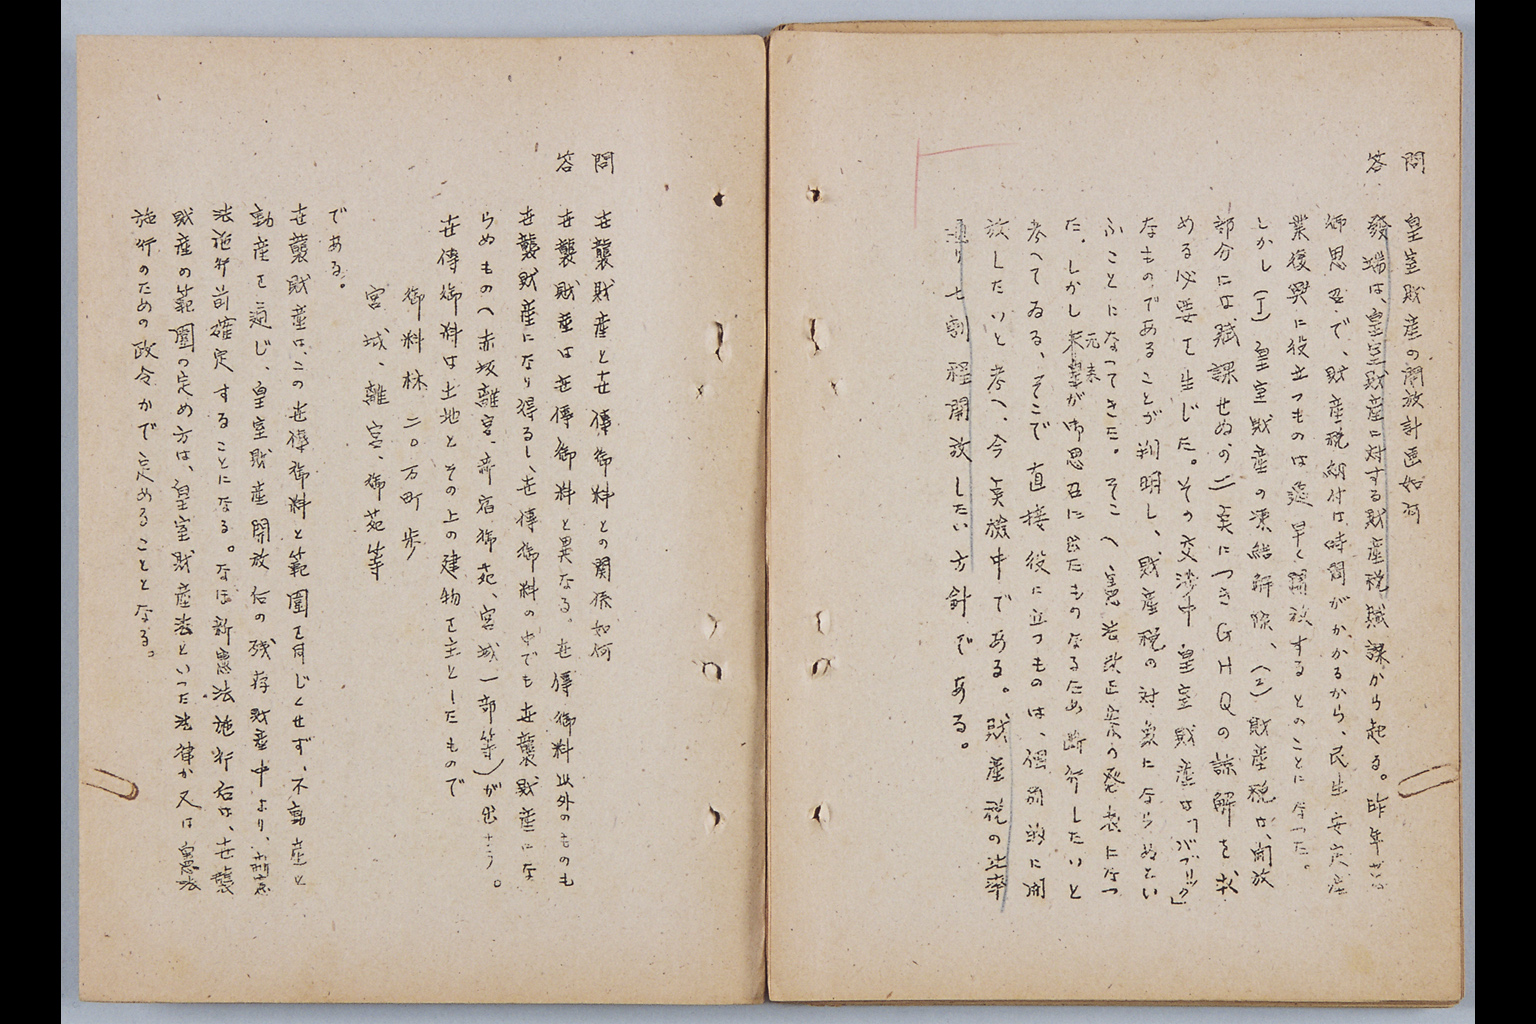 問　皇室財産の開放計画如何
答　發端は、皇室財産に対する財産税賦課から起る。昨年
御思召で、財産税納付は時間がかかるから、民生安定産
業復興に役立つものは逸早く開放するとのことになつた。
しかし(1)皇室財産の凍結解除、(2)財産税は、開放
部分には賦課せぬの二点につきGHQの諒解を求
める必要を生じた。その交渉中皇室財産は「パブリック」
なものであることが判明し、財産税の対象にならぬとい
ふことになつてきた。そこへ憲法改正案の発表になつ
た。しかし元来が御思召に出たものなるため断行したいと
考へてゐる、そこで直接役に立つものは、個別的に開
放したいと考へ、今点檢中である。財産税の比率
通り七割程開放したい方針である。
問　世襲財産と世傳御料との関係如何
答　世襲財産は世傳御料と異なる。世傳御料以外のものも
世襲財産になり得るし、世傳御料の中でも世襲財産にな
らぬもの(赤坂離宮、新宿御苑、宮城一部等)が出よう。
世傳御料は土地とその上の建物を主としたもので
御料林　二〇万町歩
宮城、離宮、御苑等
である。
世襲財産は、この世傳御料と範圍を同じくせず、不動産と
動産を通じ、皇室財産開放后の残存財産中より、新憲
法施行前確定することになる。なほ新憲法施行后は、世襲
財産の範圍の定め方は、皇室財産法といつた法律か又は憲法
施行のための政令かで定めることとなる。